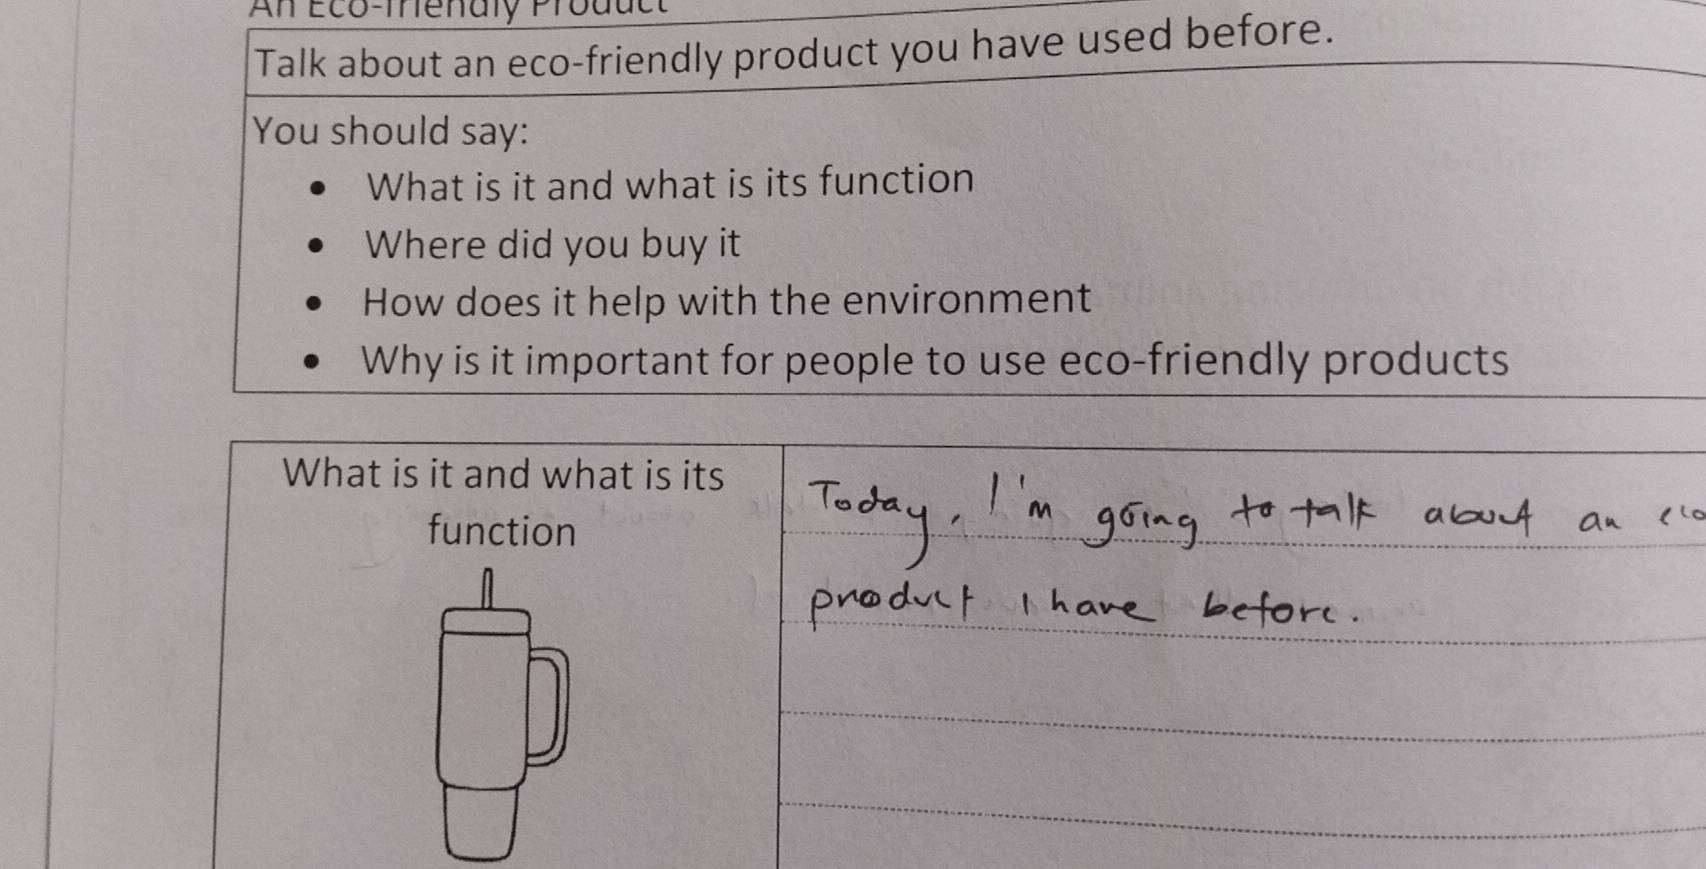 An Eco-friendly Product
Talk about an eco-friendly product you have used before.
You should say:
• What is it and what is its function
• Where did you buy it
• How does it help with the environment
• Why is it important for people to use eco-friendly products
What is it and what is its
function
Today, I'm going to talk about an
product I have before.